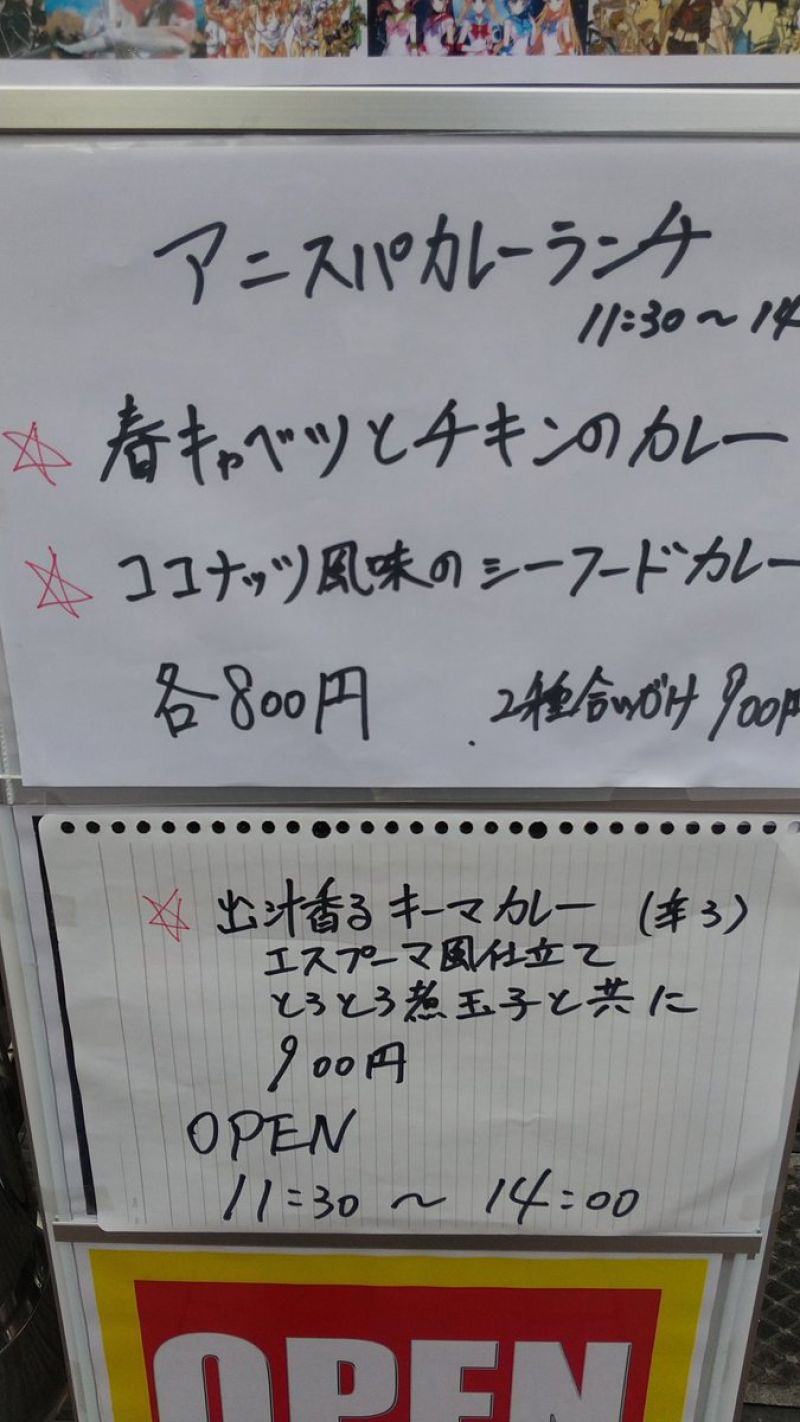 アニスパカレーランチ
11:30～14
春キャベツとチキンのカレー
ココナッツ風味のシーフードカレー
各800円 2種合いがけ 900円
出汁香るキーマカレー (辛3)
エスプーマ風仕立て
とろとろ煮玉子と共に
900円
OPEN
11:30 ～ 14:00
OPEN